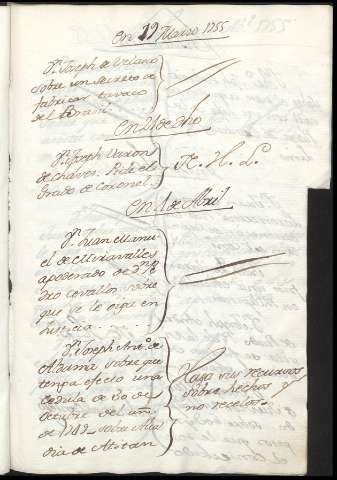 En 19 Marzo 1755
Dn. Joseph de Velasco
sobre un secreto de
fabricar tavaco
del Brasil
En 21 de dho
Dn. Joseph Varon
de Chavos. Pide el
Grado de Coronel
N. H. L.
En 1 de Abril
Dn. Juan Manu
el de Miravalles
apoderado de Dn. Pe
dro Cevallos sobre
que se le oiga en
Justicia
Dn. Joseph Anto. de
Aldama sobre que
tenga efecto una
cedula de 30 de
octubre del año
de 1749 sobre Alca
dia de Atitan
Haga sus recursos
sobre hechos y
no recelos